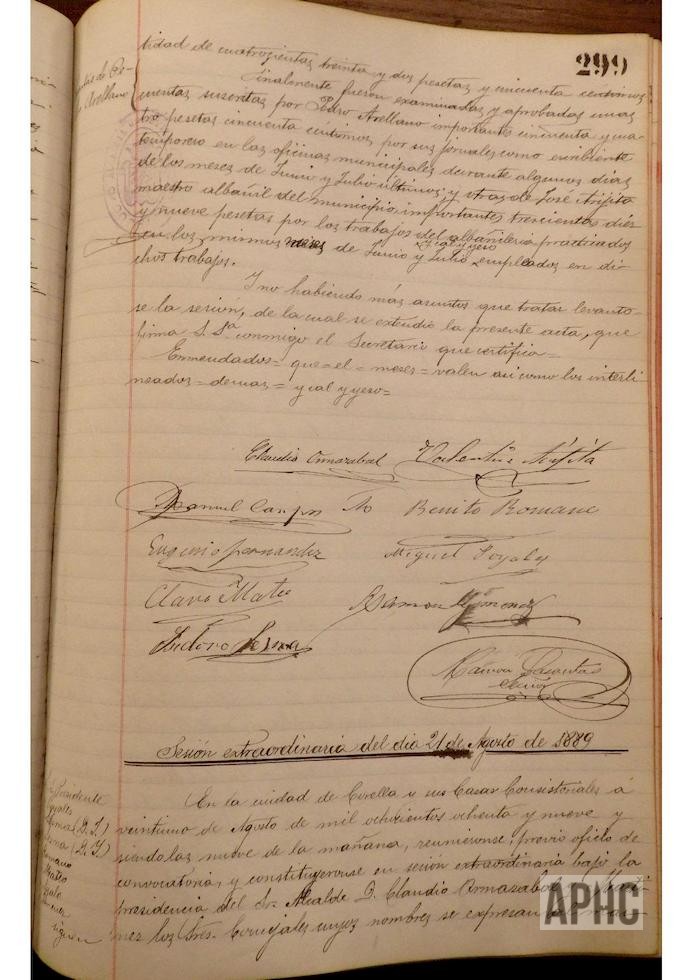 299
tidad de cuatrocientas treinta y dos pesetas y cincuenta centimos
Finalmente fueron examinadas y aprobadas unas
cuentas suscritas por Pedro Arellano importantes cincuenta y cua-
tro pesetas cincuenta centimos por sus jornales como escribiente
temporero en las oficinas municipales durante algunos dias
de los meses de Junio y Julio últimos; y otras de José Arjita
maestro albañil del municipio, importantes trescientas diez
y nueve pesetas por los trabajos del albañileria practicados
en los mismos meses de Junio y Julio y cal y yeso empleados en di-
chos trabajos.
Y no habiendo más asuntos que tratar levanto-
se la sesión, de la cual se extendió la presente acta, que
firma S. Sª conmigo el Secretario que certifica=
Enmendados= que=el= meses= valen asi como los interli-
neados= demas= y cal y yeso=
Claudio Amazabal
Manuel Campos
Benito Romano
Eugenio Fernandez
Miguel
Clavo Mateo
Ramon Gimenez
Isidoro Sesma
Sesión extraordinaria del dia 21 de Agosto de 1889
Presidente
En la ciudad de Corella y sus Casas Consistoriales á
veintiuno de Agosto de mil ochocientos ochenta y nueve y
siendo las nueve de la mañana, reunieronse, previo oficio de
convocatoria, y constituyeronse en sesión extraordinaria bajo la
presidencia del Sr. Alcalde D. Claudio Amazabal
nez los Sres. Concejales cuyos nombres se expresan al mar-
siguen
APHC